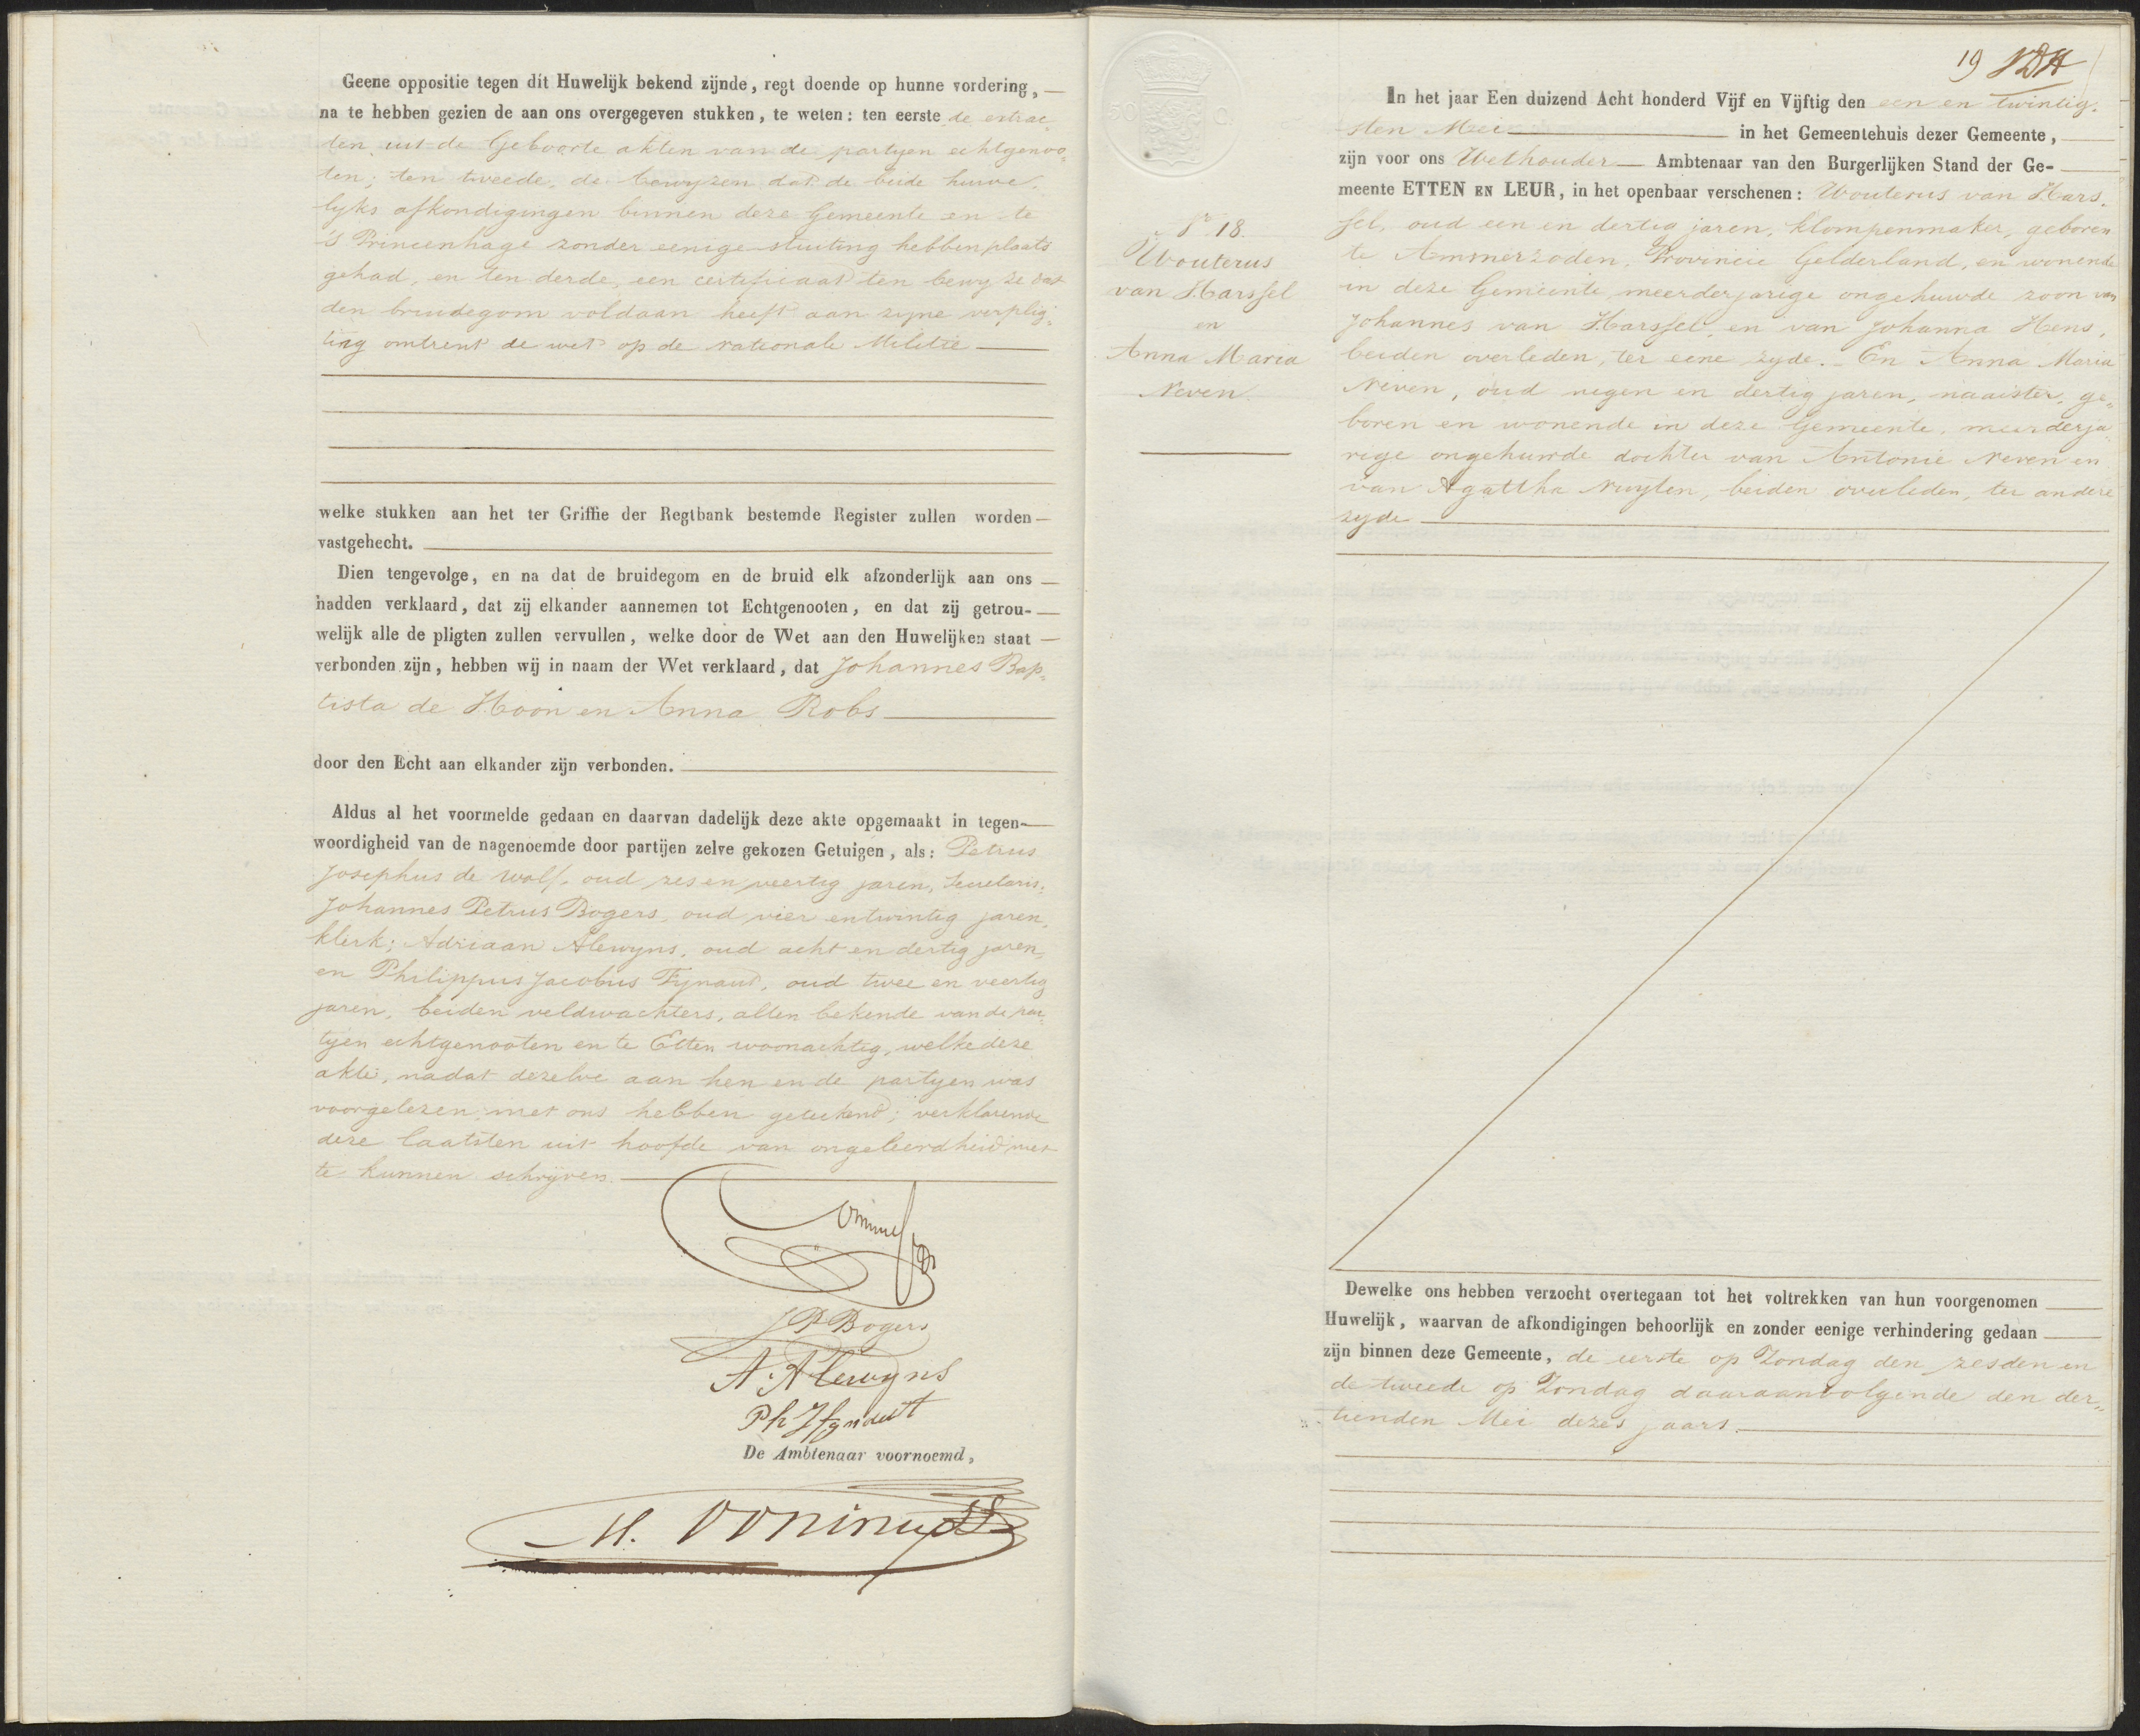 Geene oppositie tegen dit Huwelijk bekend zijnde, regt doende op hunne vordering,
na te hebben gezien de aan ons overgegeven stukken, te weten: ten eerste de extrac„
ten uit de Geboorte akten van de partyen echtgenoo„
ten; ten tweede, de bewyzen dat de beide huwe„
lyks afkondigingen binnen deze Gemeente en te
's Princenhage zonder eenige stuiting hebben plaats
gehad, en ten derde, een certificaat ten bewyze dat
den bruidegom voldaan heeft aan zyne verplig„
ting omtrent de wet op de nationale Militie
welke stukken aan het ter Griffie der Regtbank bestemde Register zullen worden
vastgehecht.
Dien tengevolge, en na dat de bruidegom en de bruid elk afzonderlijk aan ons
hadden verklaard, dat zij elkander aannemen tot Echtgenooten, en dat zij getrou-
welijk alle de pligten zullen vervullen, welke door de Wet aan den Huwelijken staat
verbonden zijn, hebben wij in naam der Wet verklaard, dat Johannes Bap„
tista de Hoon en Anna Robs
door den Echt aan elkander zijn verbonden.
Aldus al het voormelde gedaan en daarvan dadelijk deze akte opgemaakt in tegen-
woordigheid van de nagenoemde door partijen zelve gekozen Getuigen, als: Petrus
Josephus de Wolf, oud zes en veertig jaren, Secretaris;
Johannes Petrus Bogers, oud vier en twintig jaren,
klerk; Adriaan Alewyns, oud acht en dertig jaren,
en Philippus Jacobus Fynaut, oud twee en veertig
jaren, beiden veldwachters, allen bekende van de par„
tyen echtgenooten en te Etten woonachtig, welke deze
akte, nadat dezelve aan hen en de partyen was
voorgelezen, met ons hebben geteekend; verklarende
deze laatsten uit hoofde van ongeleerdheid niet
te kunnen schryven.
J P Bogers
A. Alewyns
Ph J fynaut
De Ambtenaar voornoemd,
19
In het jaar Een duizend Acht honderd Vijf en Vijftig den een en twintig„
sten Mei in het Gemeentehuis dezer Gemeente,
zijn voor ons Wethouder Ambtenaar van den Burgerlijken Stand der Ge-
meente ETTEN EN LEUR, in het openbaar verschenen: Wouterus van Hars„
sel, oud een en dertig jaren, klompenmaker, geboren
te Ammerzoden, Provincie Gelderland, en wonende
in deze Gemeente, meerderjarige ongehuwde zoon van
Johannes van Harssel, en van Johanna Hens,
beiden overleden, ter eene zyde. En Anna Maria
Neven, oud negen en dertig jaren, naaister, ge„
boren en wonende in deze Gemeente, meerderja„
rige ongehuwde dochter van Antonie Neven en
van Agattha Nuyten, beiden overleden, ter andere
zyde
No 18.
Wouterus
van Harssel
en
Anna Maria
Neven.
Dewelke ons hebben verzocht overtegaan tot het voltrekken van hun voorgenomen
Huwelijk, waarvan de afkondigingen behoorlijk en zonder eenige verhindering gedaan
zijn binnen deze Gemeente, de eerste op Zondag den zesden en
de tweede op Zondag daaraanvolgende den der„
tienden Mei dezes jaars.